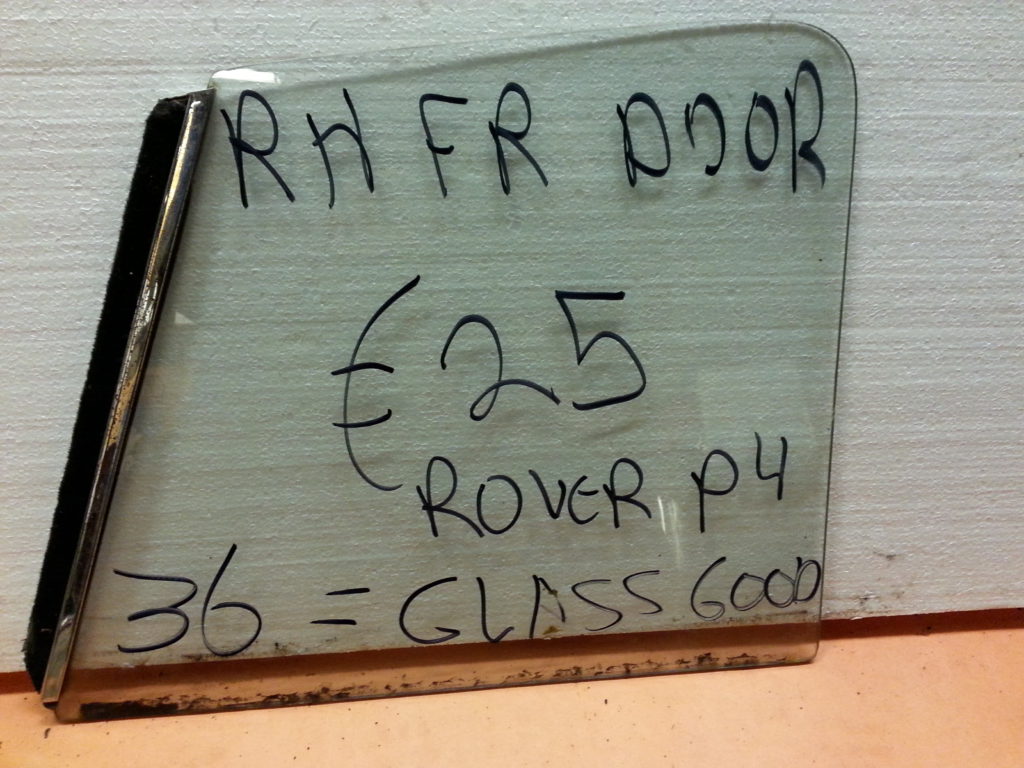 RH FR DOOR
€25
ROVER P4
36 = GLASS GOOD